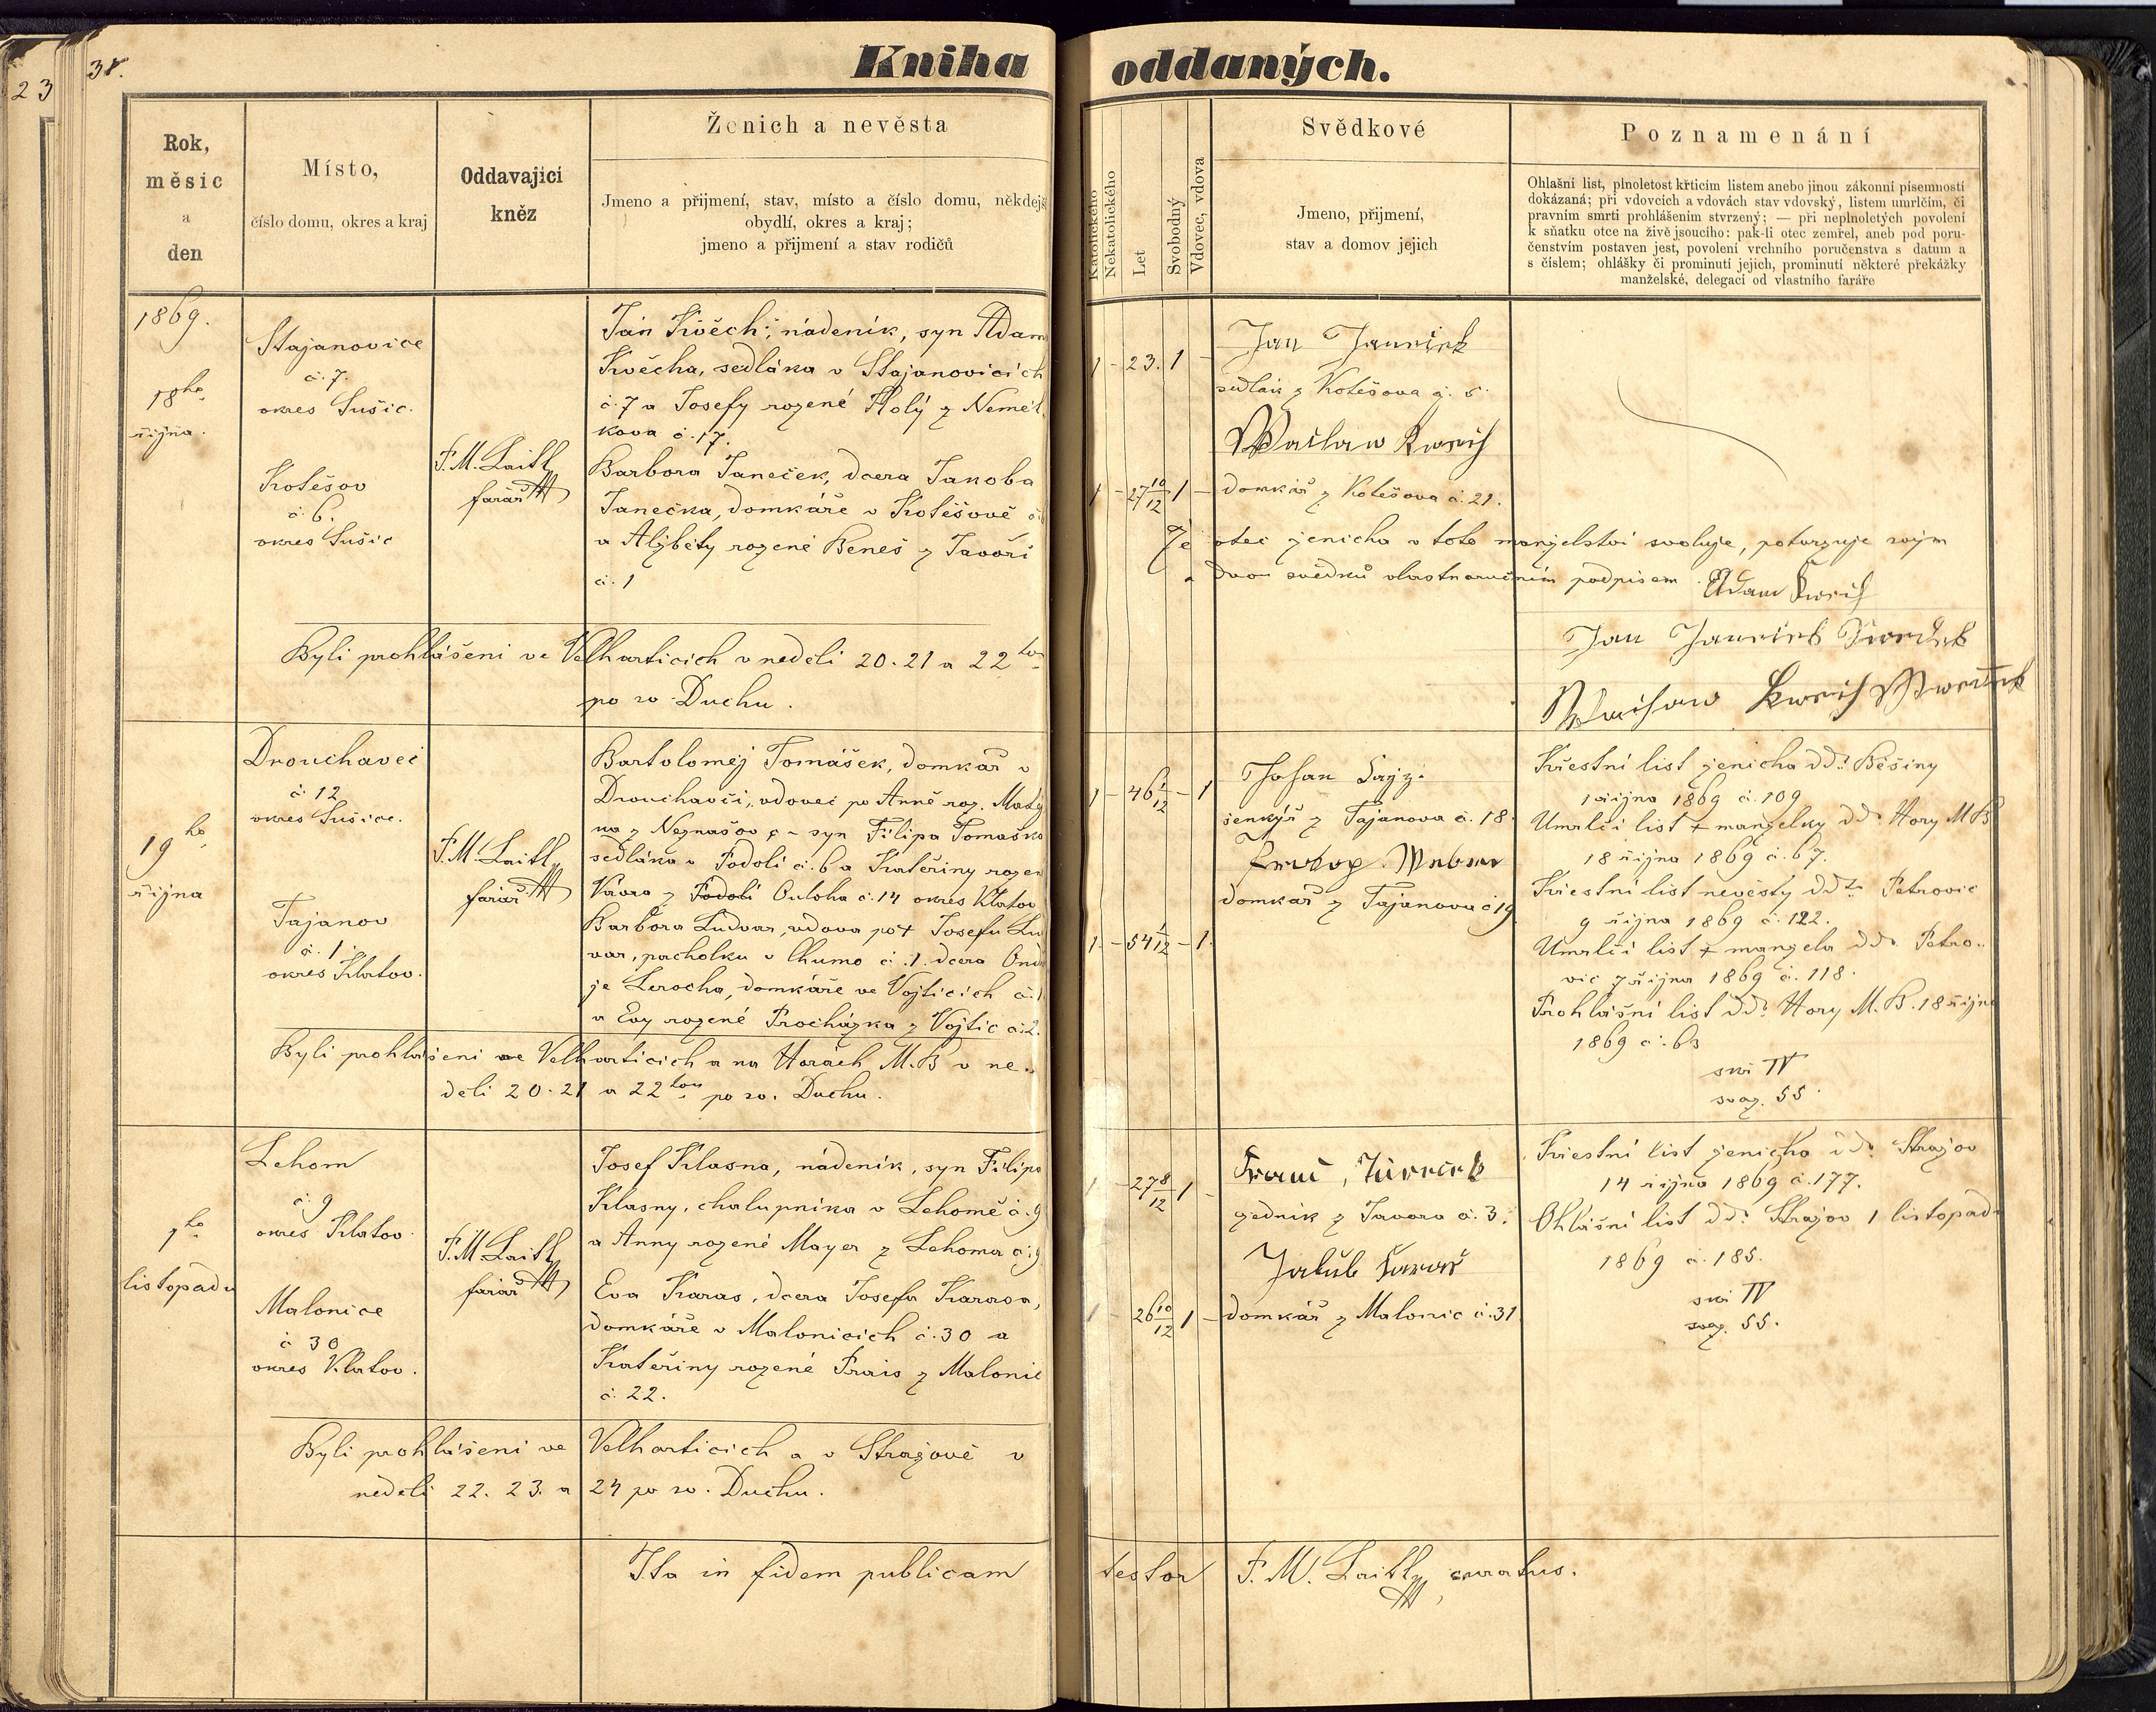 23
38.
Kniha oddaných.
Rok,
měsic
a
den
Místo,
číslo domu, okres a kraj
Oddavajici
kněz
Ženich a nevěsta
Jmeno a přijmení, stav, místo a číslo domu, někdejší
obydlí, okres a kraj;
jmeno a přijmení a stav rodičů
Katolického
Nekatolického
Let
Svobodný
Vdovec, vdova
Svědkové
Jmeno, přijmení,
stav a domov jejich
Poznamenání
Ohlašní list, plnoletost křticím listem anebo jinou zákonní písemností
dokázaná; při vdovcích a vdovách stav vdovský, listem umrlčím, či
pravním smrti prohlášením stvrzený; — při neplnoletých povolení
k sňatku otce na živě jsoucího: pak-li otec zemřel, aneb pod poru-
čenstvím postaven jest, povolení vrchního poručenstva s datum a
s číslem; ohlášky či prominutí jejich, prominutí některé překážky
manželské, delegací od vlastního faráře
1869.
18ho
října.
Stajanovice
č. 7.
okres Sušic.
Kotěšov
č. 6.
okres Sušic
F. M. Laitl
farář
Jan Kvěch, nádeník, syn Adam
Kvěcha, sedláka v Stajanovicích
č. 7 a Josefy rozené Holý z Neměl
kova č. 17.
Barbora Janeček, dcera Jakoba
Janečka, domkáře v Kotěšově
a Alžběty rozené Beneš z Javoří
č. 1
Byli prohlášeni ve Velharticích v neděli 20. 21 a 22tou
po sv. Duchu.
1 - 23. 1 -
1 - 27 10/12 1 -
Jan Janeček
sedlák z Kotěšova č. 6.
domkář z Kotěšova č. 21.
Že otec ženicha v toto manželství svoluje, potvrzuje svým
a dvou svědků vlastnoručním podpisem Adam
Jan
19ho
října
Drouhavec
č. 12
okres Sušice.
Tajanov
č. 1.
okres Klatov.
F. M. Laitl
farář
Bartoloměj Tomášek, domkář v
Drouhavči, vdovec po Anně roz.
na z Neznašov syn Filipa Tomaška
sedláka v Podolí č. 6 a Kateřiny rozen
Kávra z Podolí Ouloha č. 14 okres Klatov
Barbora Ludvar, vdova po † Josefu Lu
var, pacholku v Chumo č. 1. dcera Ond
je Lerocha, domkáře ve Vojticích č. 1
a Evy rozené Procházka z Vojtic č. 2.
Byli prohlášeni ve Velharticích a na Horách M. B v ne-
děli 20. 21 a 22tou po sv. Duchu.
1 - 46 1/12 - 1
1 - 54 1/12 - 1.
Johan
šenkýř z Tajanova č. 18.
Prokop
domkář z Tajanova č 19
Křestní list ženicha ddo Běšiny
1 října 1869 č. 109
Umrlčí list † manželky ddo Hory M B
18 října 1869 č. 67.
Křestní list nevěsty ddto Petrovic
9 října 1869 č. 122.
Umrlčí list † manžela ddo Petro-
vic 7 října 1869 č. 118.
Prohlášní list ddo Hory M. B. 18 října
1869 č. 63
skř IV
svaz. 55.
7ho
listopadu
Lehom
č. 9
okres Klatov.
Malonice
č 30
okres Klatov.
F. M. Laitl
farář
Josef Klasna, nádeník, syn Filipa
Klasny, chalupníka v Lehomě č. 9
a Anny rozené Mayer z Lehoma č. 9
Eva Karas, dcera Josefa Karasa,
domkáře v Malonicích č. 30 a
Kateřiny rozené Prais z Malonic
č. 22.
Byli prohlášeni ve Velharticích a v Stražově v
neděli 22. 23. a 24 po sv. Duchu.
1 - 27 8/12 1 -
1 - 26 10/12 1 -
zedník z Javora č. 3.
Jakub Karas
domkář z Malonic č. 31
Křestní list ženicha ddo Stražov
14 října 1869 č. 177.
Ohlášní list ddo Stražov 1 listopad
1869 č. 185.
skř IV
svaz. 55.
Ita in fidem publicam testor F. M. Laitl, curatus.